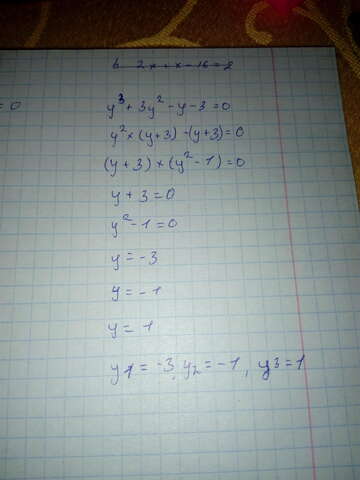 = 0
y³ + 3y² - y - 3 = 0
y² × (y + 3) - (y + 3) = 0
(y + 3) × (y² - 1) = 0
y + 3 = 0
y² - 1 = 0
y = -3
y = -1
y = 1
y1 = -3, y2 = -1, y3 = 1